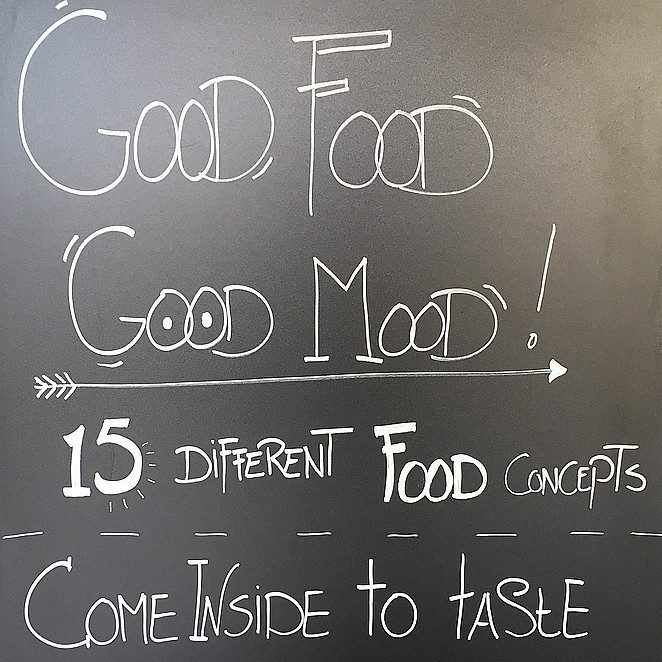 GOOD FOOD
GOOD MOOD!
15 DiFFERENT FOOD CONCEPTS
COME INSiDE to tAStE